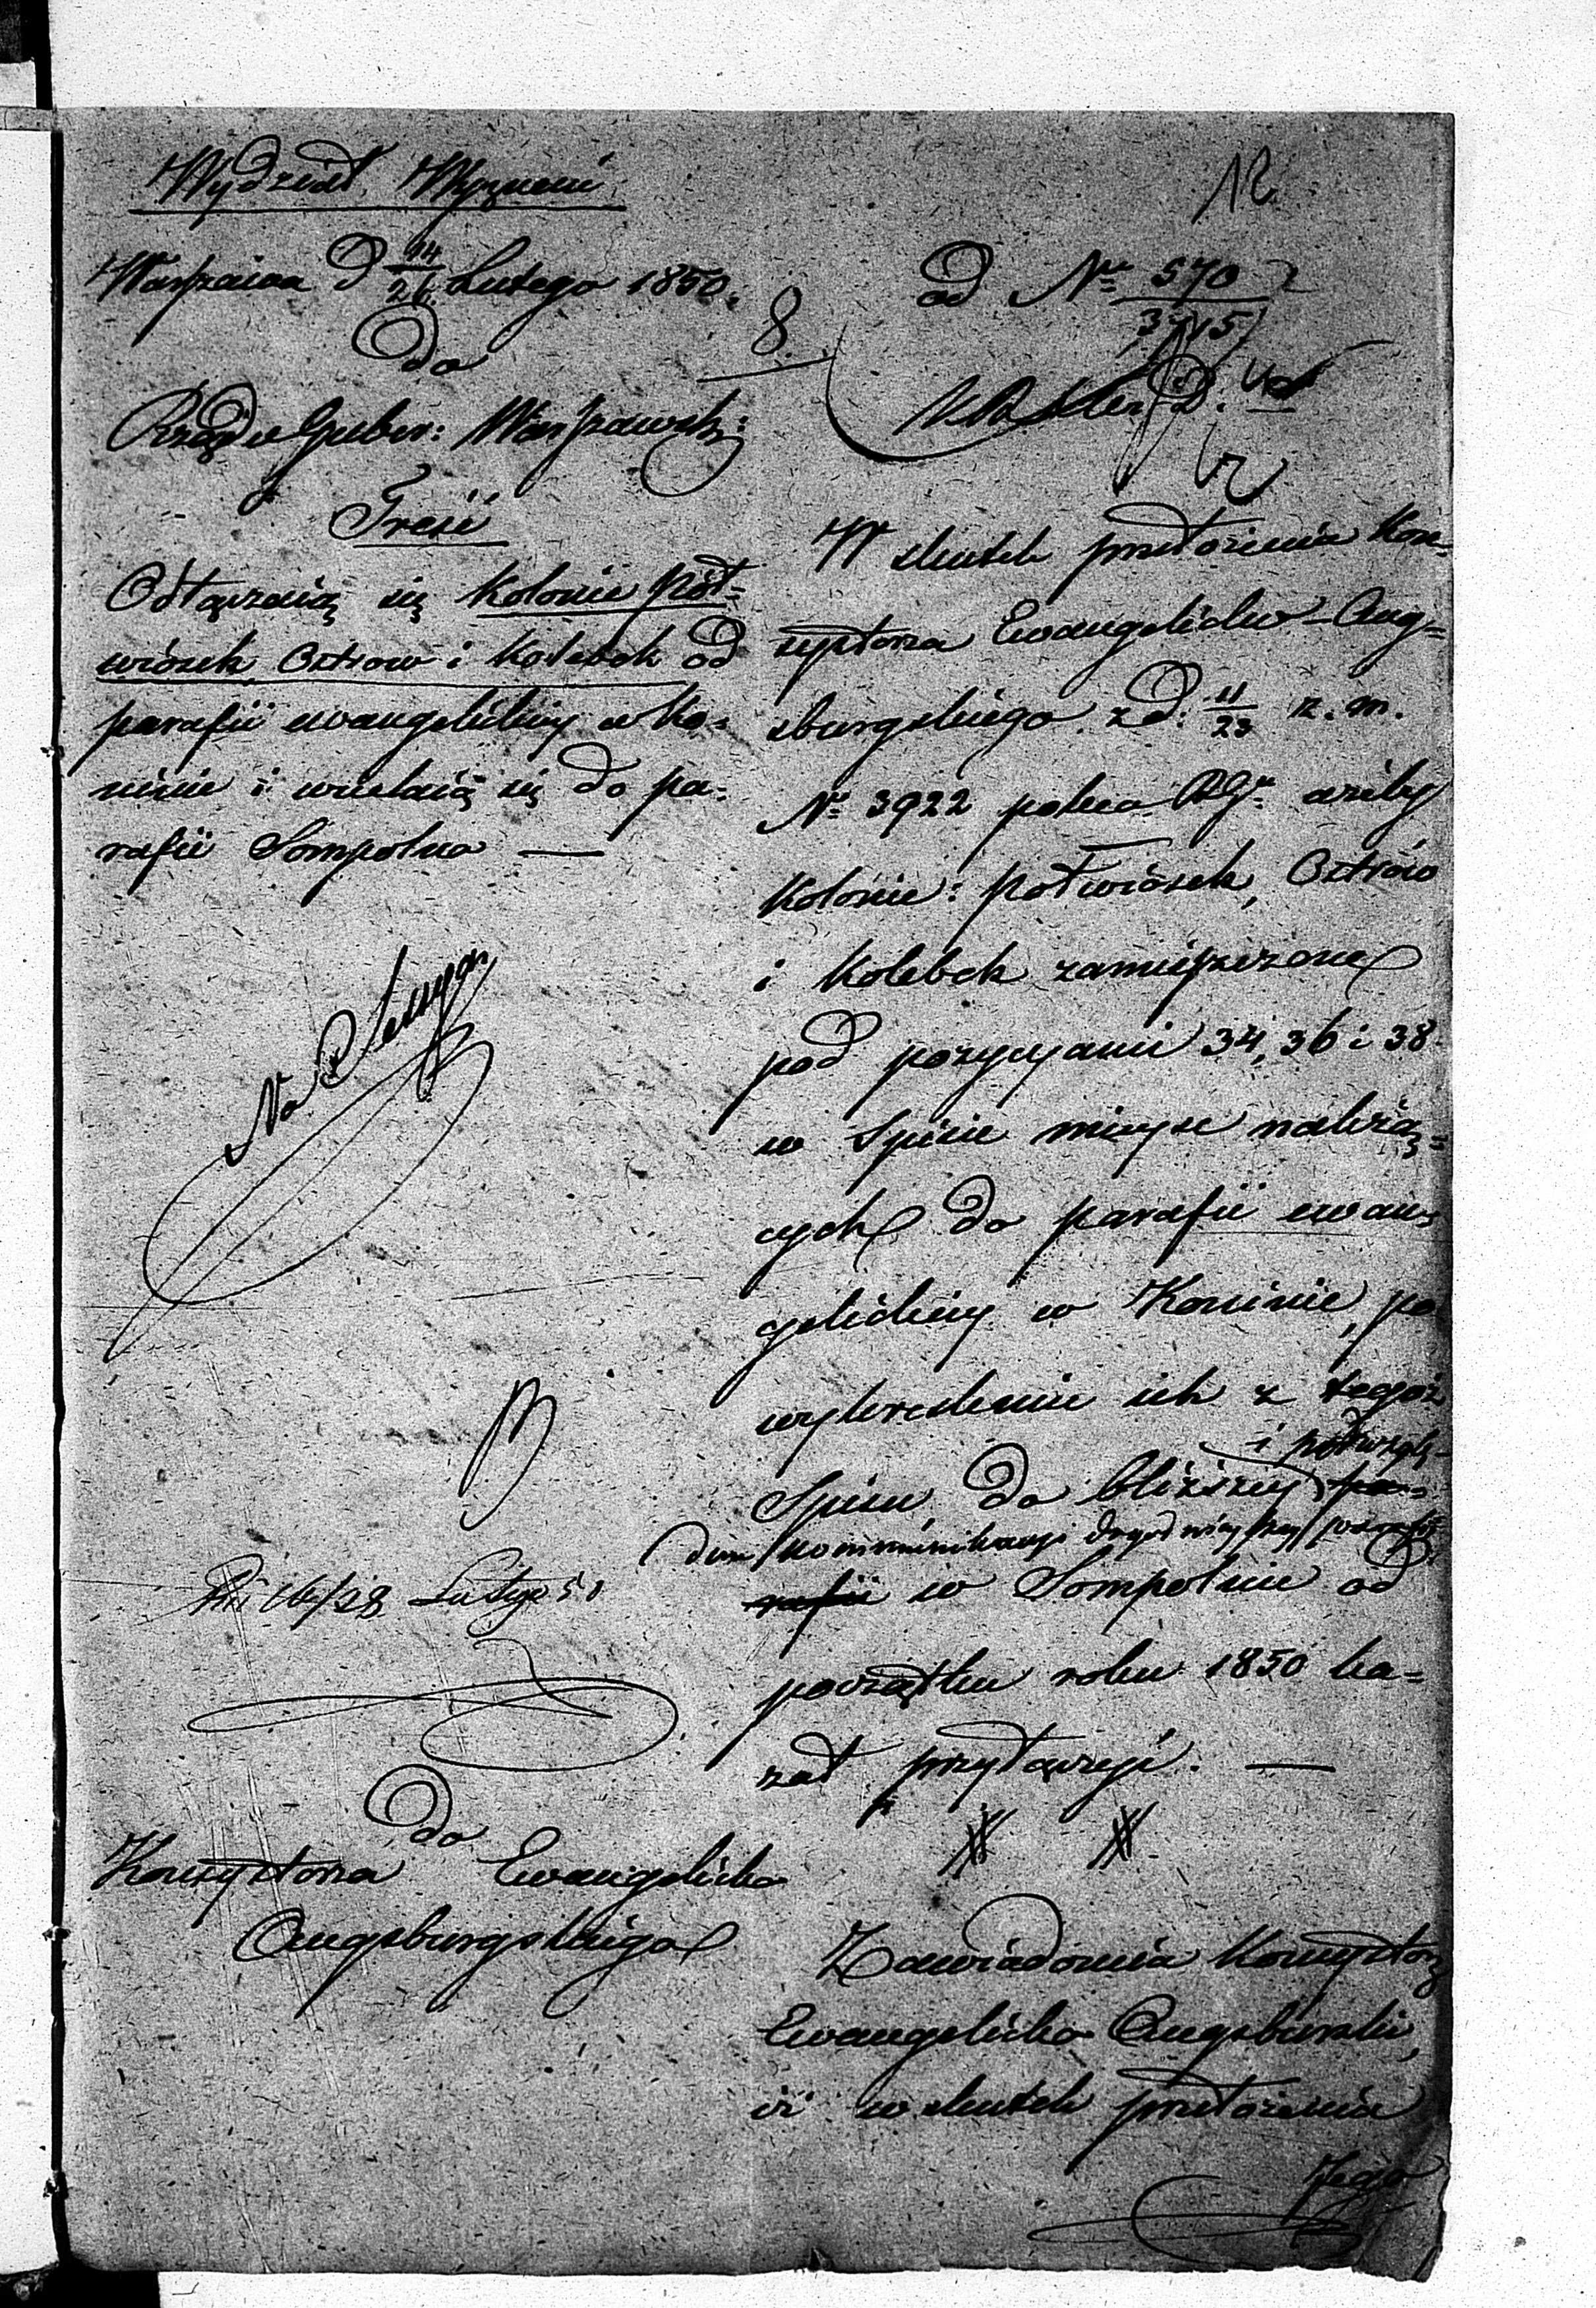 Wydział Wyznań
12
Warszawa d 14/26 Lutego 1850.
8
od Nr 570/3715
Do
Rządu Guber: Warszawsk:
Treść
Odłączaią się Kolonie Pół=
wiosek, Ostrow i Kolebek od
parafii ewangelickiey w Ko=
ninie i wcielaią się do pa=
rafii Sompolno —
Na Sessyą
16/28 Lutego 50
Do
Konsystorza Ewangelicko
Augsburgskiego
W skutek przełożenia Kon=
systorza Ewangelicko-Aug=
sburgskiego z d: 11/23 z. m.
Nr 3922 poleca RGu ażeby
Kolonie: Połwiosek, Ostrów
i Kolebek zamieszczone
pod pozycyami 34, 36 i 38
w Spisie mieysc należą=
cych do parafii ewan=
gelickiey w Koninie, po
wykreśleniu ich z tegoż
i pod wzglę=
Spisu, do bliższey pa=
dem kommunikacyi dogodnieyszey parafii
rafii w Sompolnie od
początku roku 1850 ka=
zał przyłączyć. —
Zawiadomia Konsystorz
Ewangelicko Augsburski,
iż w skutek przełożenia
Jego